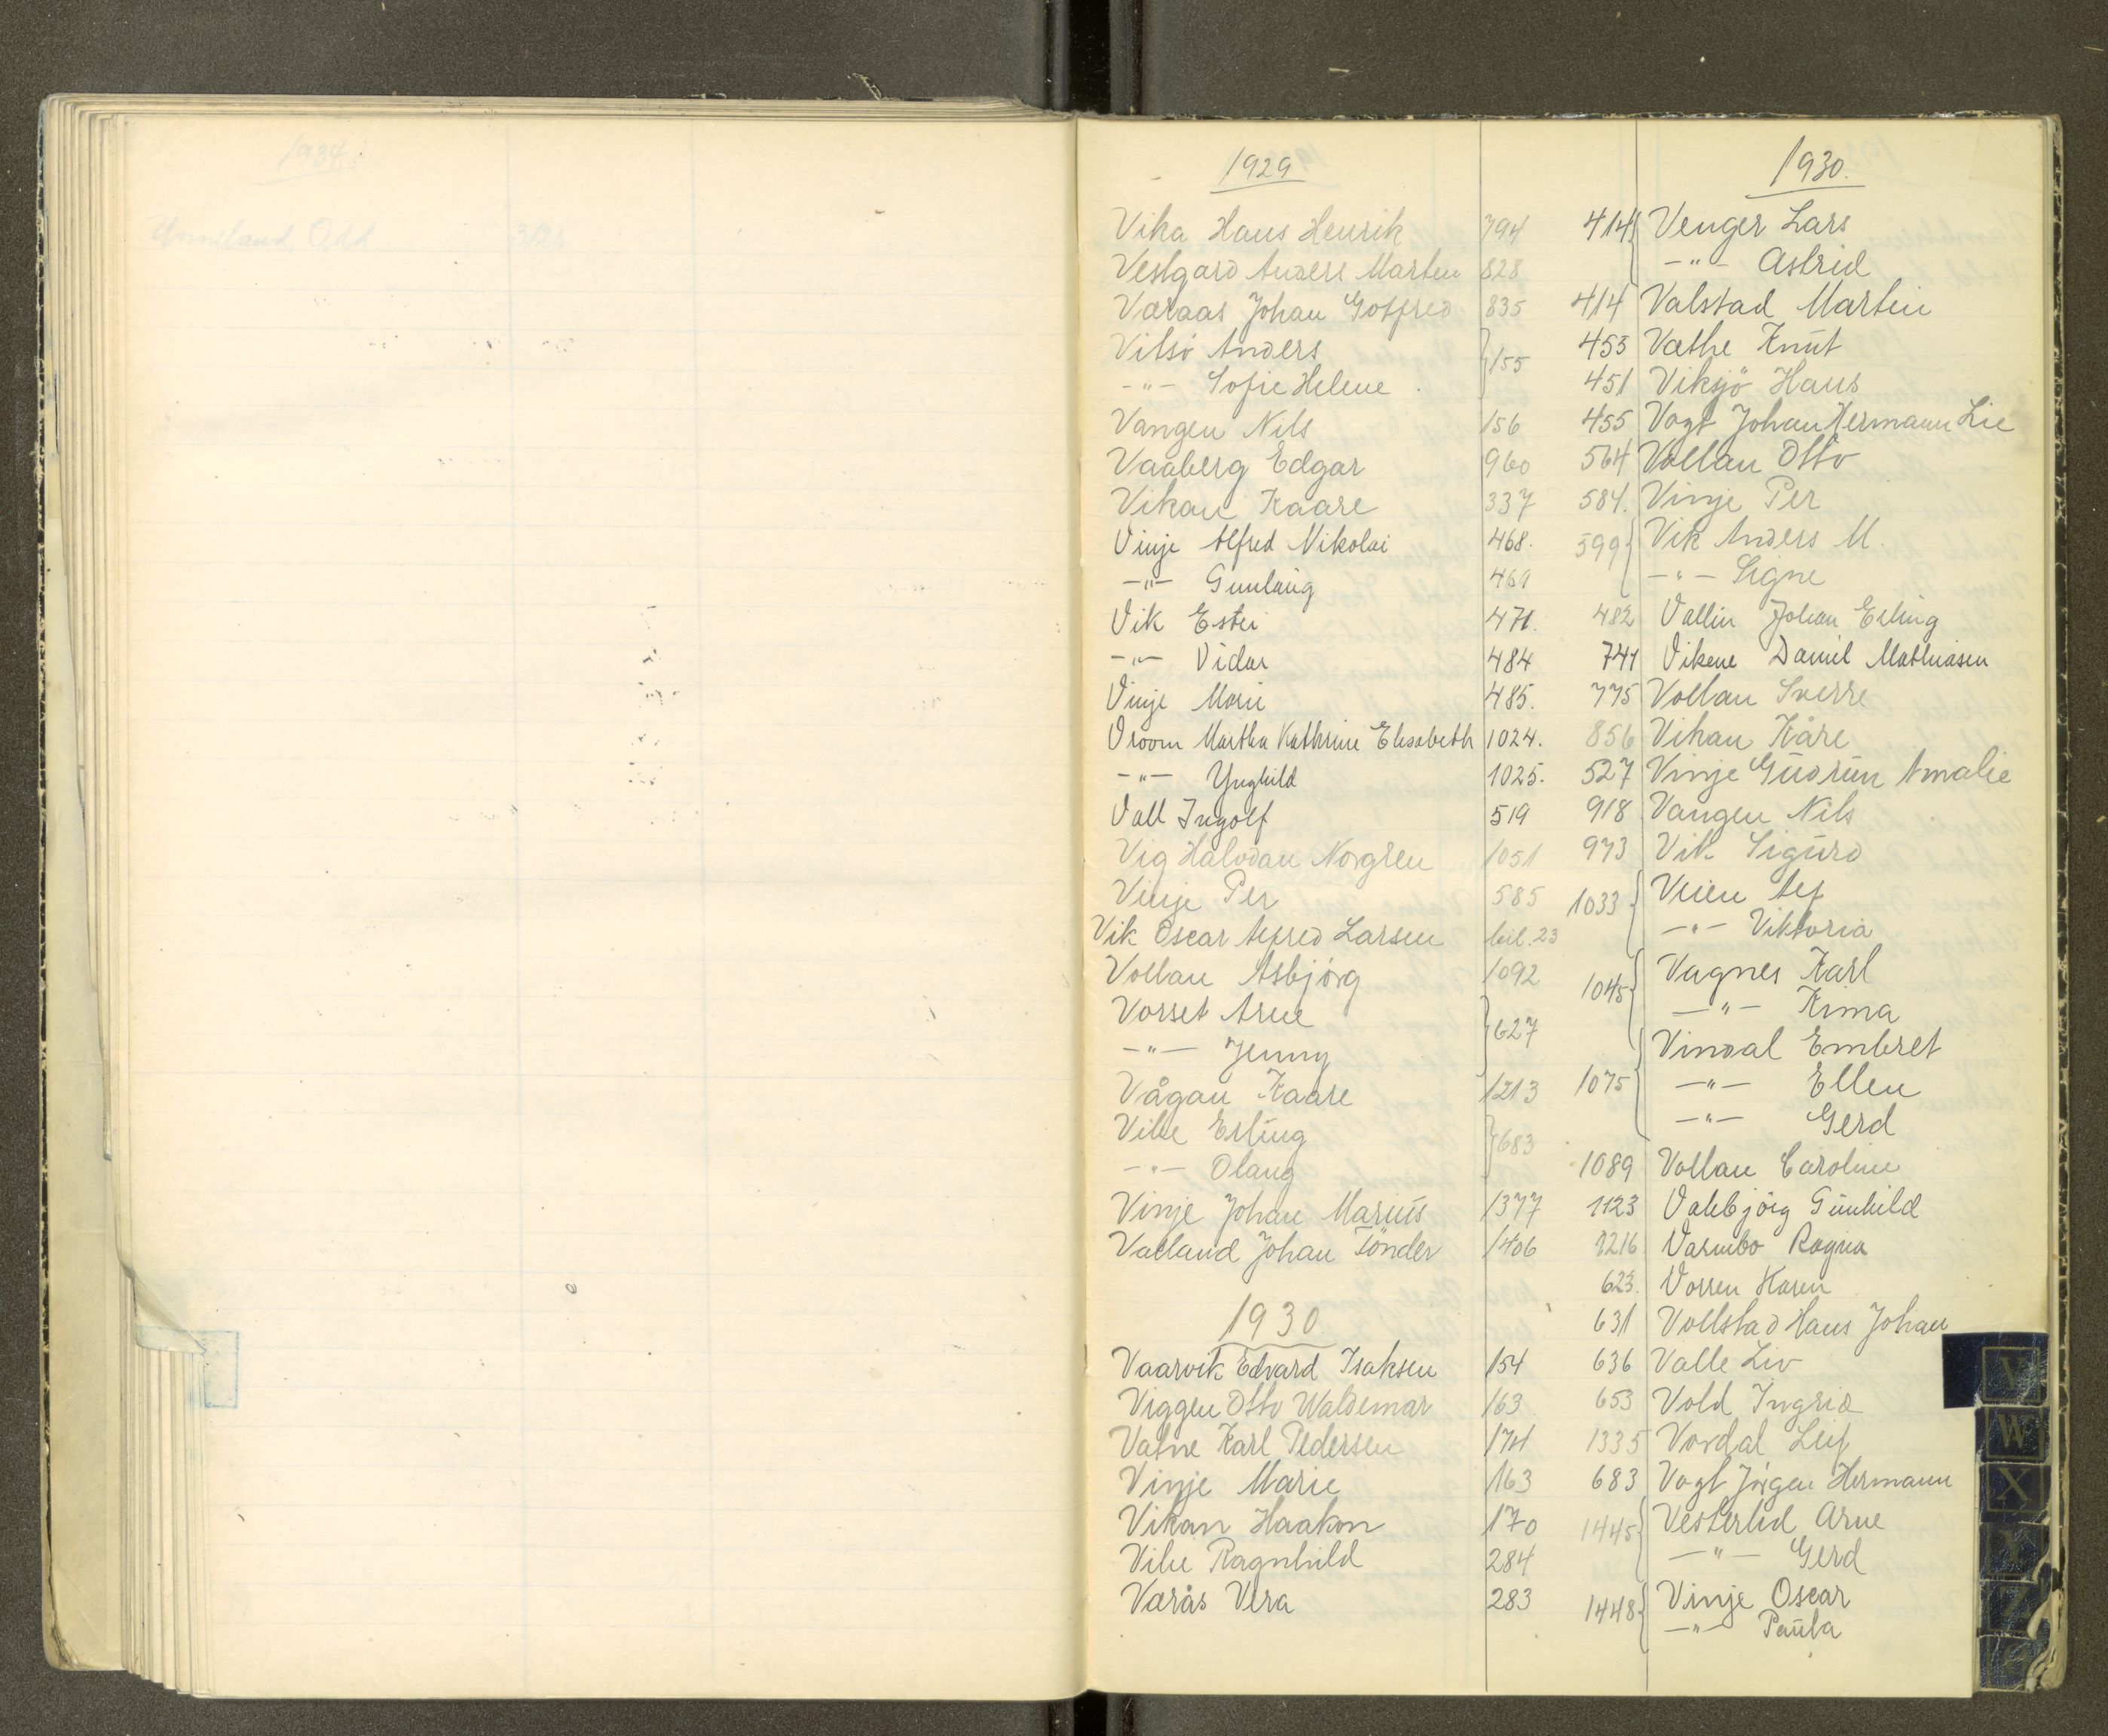 1934.
Unneland Odd
1929
Vika Hans Henrik 794
Vestgard Anders Marten 828
Væraas Johan Gotfred 835
Vitsö Anders } 155
-"- Sofie Helene
Vangen Nils 156
Vaaberg Edgar 960
Vikan Kaare 337
Vinje Alfred Nikolai 468.
-"- Gunlaug 469
Vik Ester 471.
-"- Vidar 484
Vinje Marie 485.
Vroom Martha Kathrine Elisabeth 1024.
-"- Ynghild 1025.
Vall Ingolf 519
Vig Halvdan Norgren 1051
Vinje Per 585
Vik Oscar Alfred Larsen bil. 23
Vollan Asbjörg 1092
Vorset Arne } 627
-"- Jenny
Vågan Kaare 1213
Vibe Erling } 683
-"- Olaug
Vinje Johan Marius 1377
Valland Johan Tönder 1406
1930
Vaarvik Edvard Isaksen 154
Viggen Otto Waldemar 163
Vatne Karl Pedersen 174
Vinje Marie 163
Vikan Haakon 170
Vibe Ragnhild 284
Værås Vera 283
1930.
414 { Venger Lars
-"- Astrid
414 Valstad Martin
453 Væthe Knut
451 Viksjö Hans
455 Vogt Johan Hermann Lie
564 Vollan Otto
584. Vinje Per
599 { Vik Anders M.
-"- Signe
482 Vallin Johan Erling
741 Vikene Daniel Mathiasen
775 Vollan Sverre
856 Vikan Kåre
527 Vinje Gudrun Amalie
918 Vangen Nils
973 Vik Sigurd
1033 { Veien Alf
-"- Viktoria
1045 { Vagnes Karl
-"- Kima
1075 { Vindal Embret
-"- Ellen
-"- Gerd
1089 Vollan Caroline
1123 Valebjörg Gunhild
1216 Varmbo Ragna
623. Vorren Karen
631 Vollstad Hans Johan
636 Valle Liv
653 Vold Ingrid
1335 Vordal Leif
683 Vogt Jörgen Hermann
1445 { Vesterlid Arne
-"- Gerd
1448 { Vinje Oscar
-"- Paula
V
W
X
Y
Z